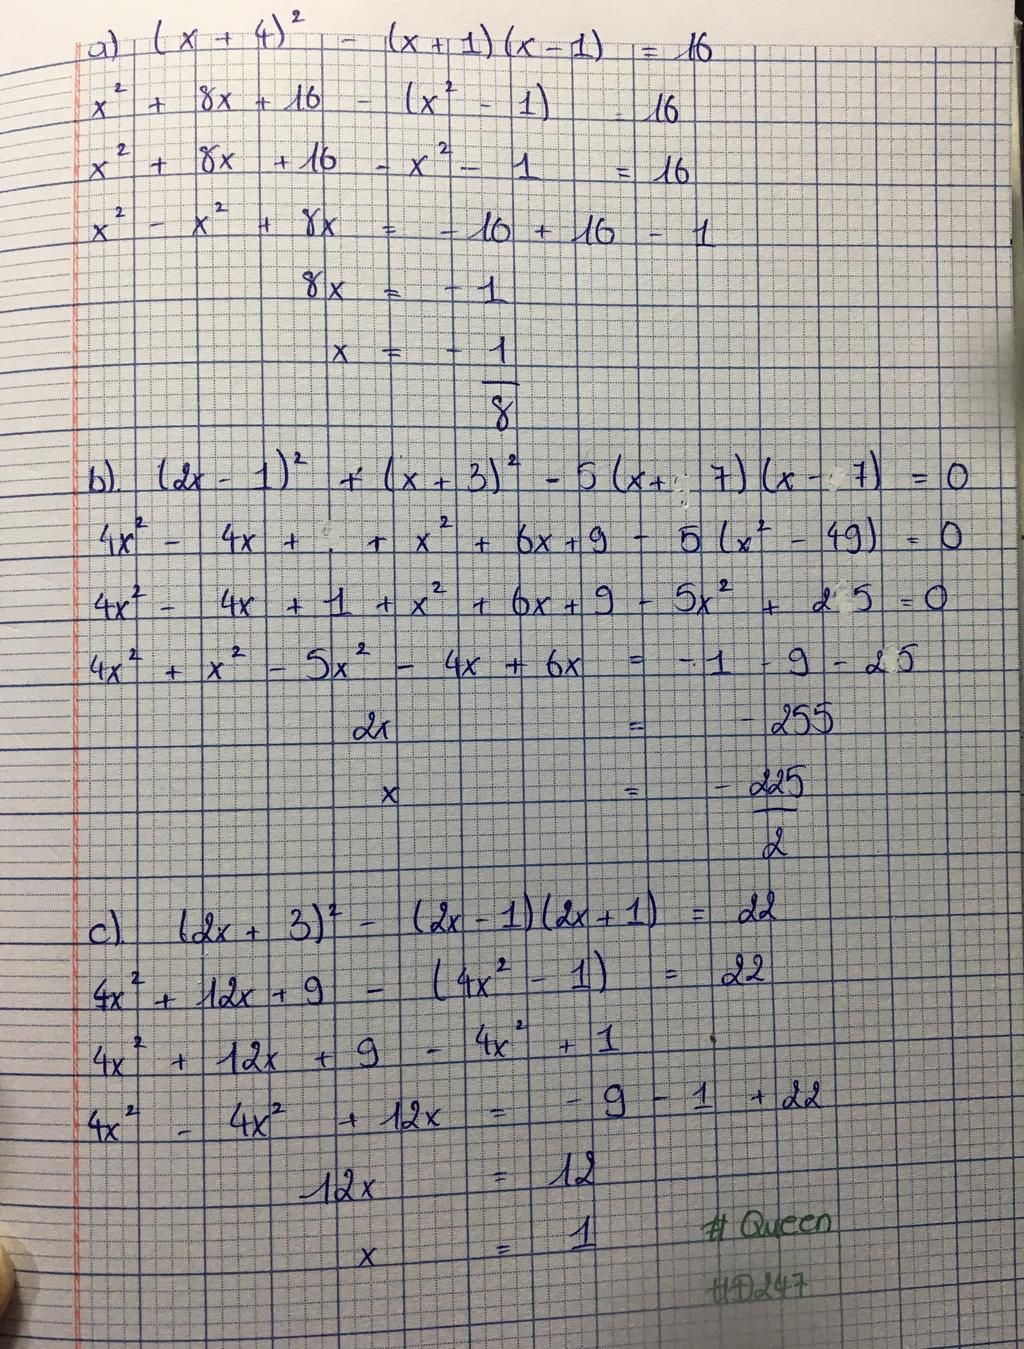 a) (x + 4)² - (x + 1)(x - 1) = 16
x² + 8x + 16 - (x² - 1) = 16
x² + 8x + 16 - x² - 1 = 16
x² - x² + 8x = - 16 + 16 - 1
8x = - 1
x = - 1/8
b). (2x - 1)² + (x + 3)² - 5 (x + 7) (x - 7) = 0
4x² - 4x + + x² + 6x + 9 - 5 (x² - 49) = 0
4x² - 4x + 1 + x² + 6x + 9 - 5x² + 2 5 = 0
4x² + x² - 5x² - 4x + 6x = - 1 - 9 - 2 5
2x = - 255
x = - 225/2
c). (2x + 3)² - (2x - 1)(2x + 1) = 22
4x² + 12x + 9 - (4x² - 1) = 22
4x² + 12x + 9 - 4x² + 1
4x² - 4x² + 12x = - 9 - 1 + 22
12x = 12
x = 1
# Queen
#D247